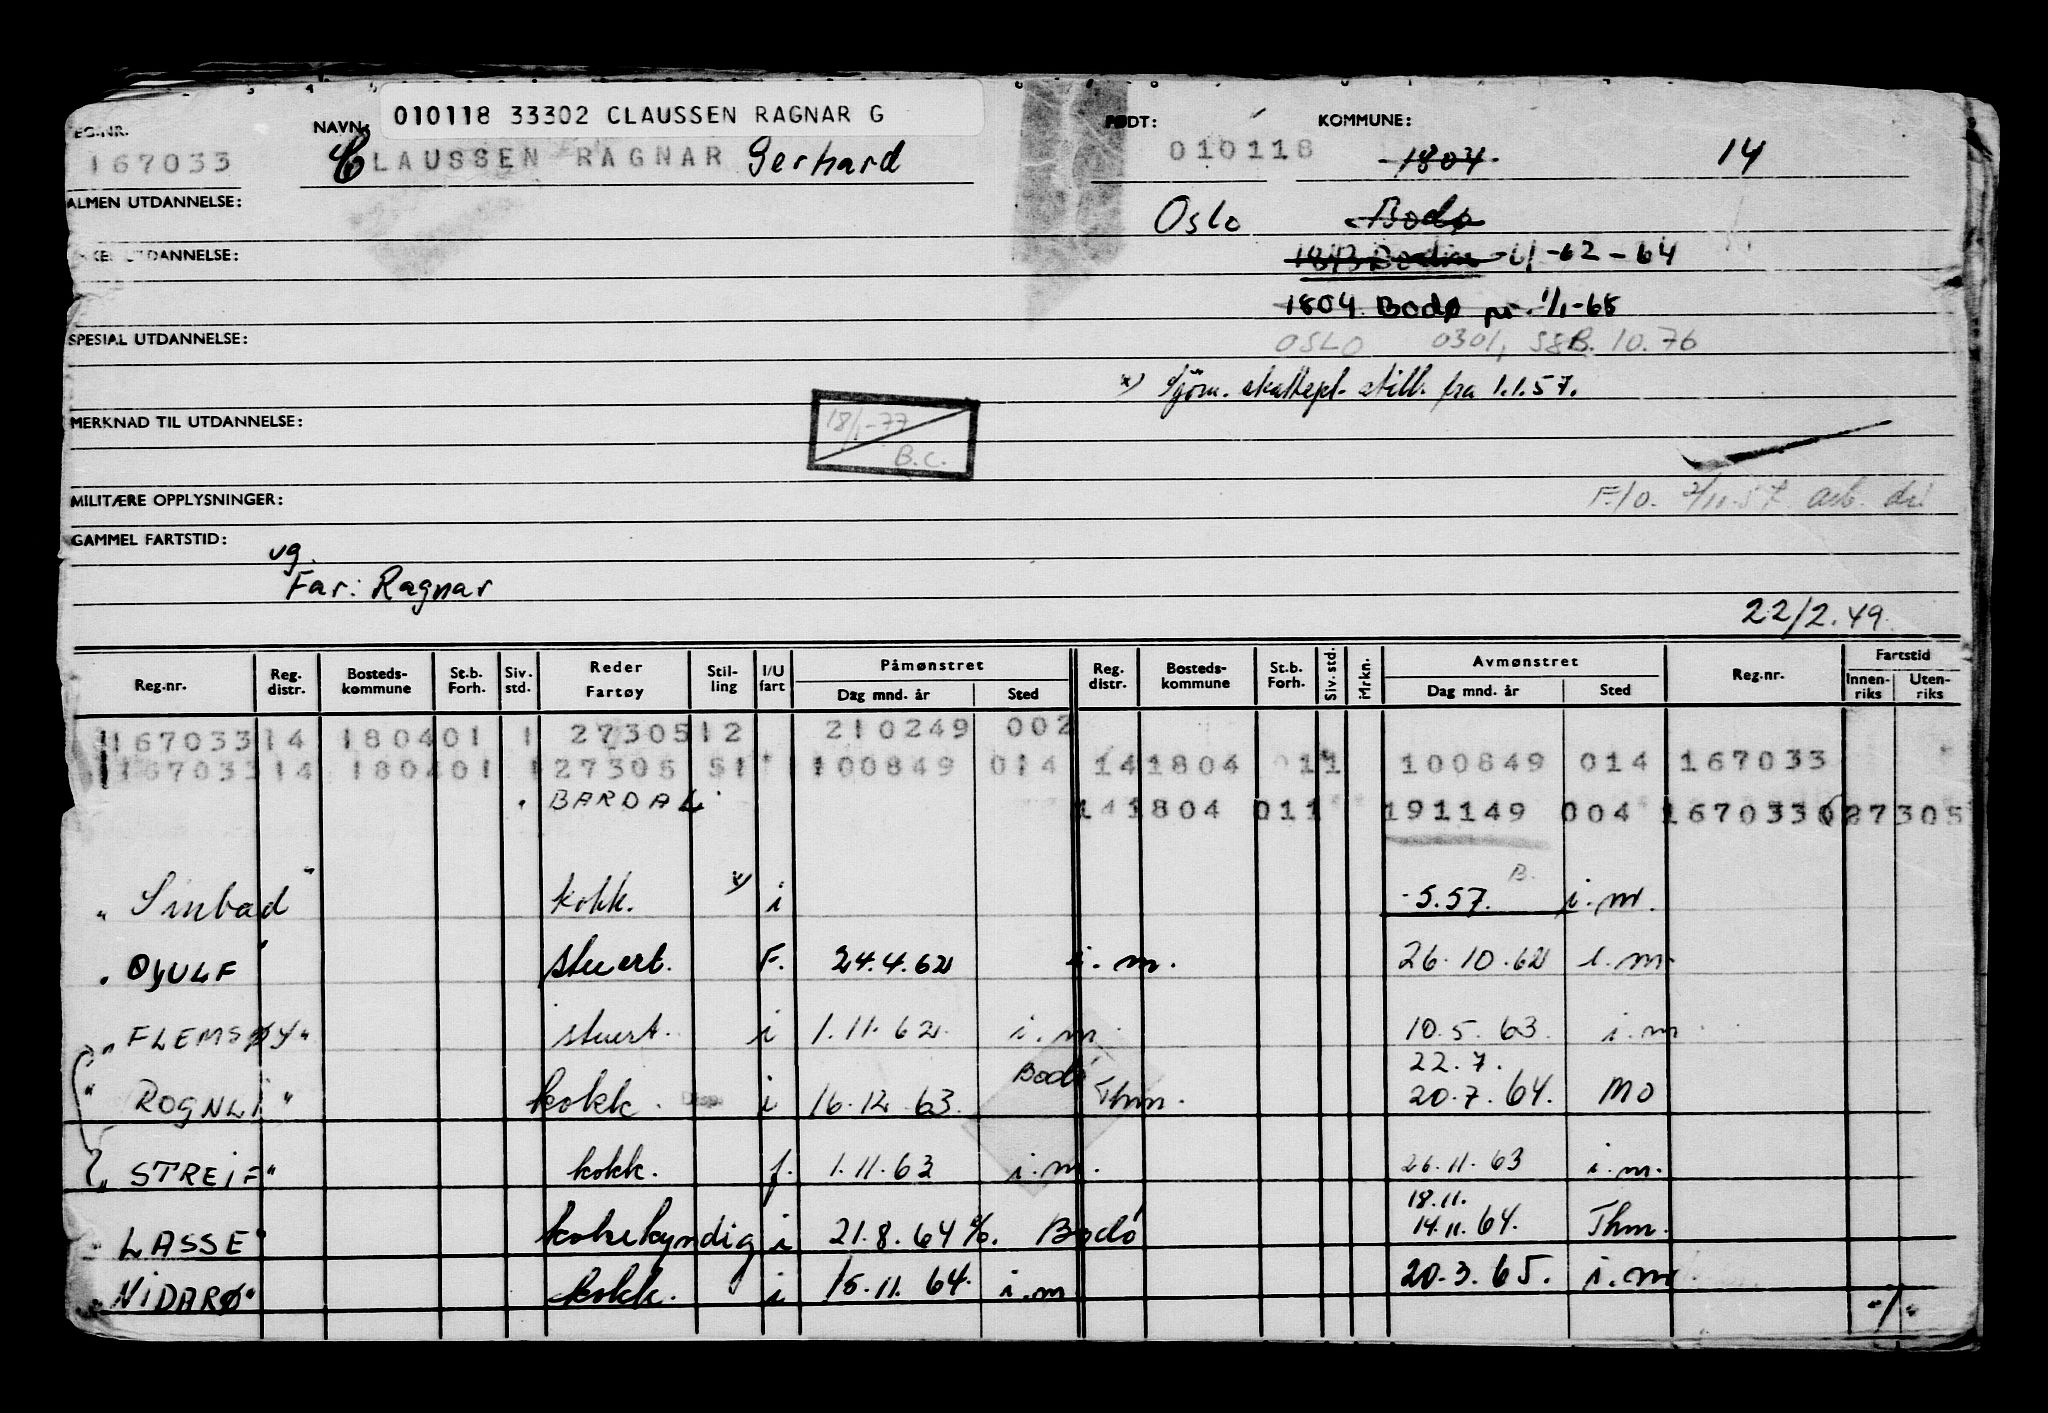 010118 33302 CLAUSSEN RAGNAR G
EG.NR. NAVN: FØDT: KOMMUNE:
167033 CLAUSSEN RAGNAR Gerhard 010118 1804 14
ALMEN UTDANNELSE: Oslo Bodø
UTDANNELSE: 1843 Bodin -62-64
1804 Bodø pr. 1/1-68
SPESIAL UTDANNELSE: OSLO 0301, SSB. 10.76
x) Sjøm. skattepl. still. fra 1.1.57.
MERKNAD TIL UTDANNELSE: 18/1-77
B.C.
MILITÆRE OPPLYSNINGER: F./O. 2/11-57
GAMMEL FARTSTID:
vg.
Far: Ragnar
22/2.49
Reg.nr. Reg. distr. Bosteds-kommune St.b. Forh. Siv. std. Reder Fartøy Stil-ling I/U fart Påmønstret Dag mnd. år Sted Reg. distr. Bosteds-kommune St.b. Forh. Siv. std. Mrkn. Avmønstret Dag mnd. år Sted Reg.nr. Fartstid Innen-riks Uten-riks
167033 14 1804 01 1 27305 12 210249 002
167033 14 1804 01 1 27305 51 100849 014 14 1804 01 1 100849 014 167033
BARDAL 14 1804 011 191149 004 167033 27305
B.
" Sinbad " kokk. x) i -5.57. i.m.
" OYULF " stuert. F. 24.4.62 i.m. 26.10.62 i.m.
" FLEMSØY " stuert. i 1.11.62 i.m. 10.5.63. i.m.
22.7.
" ROGNLI " kokk. Disp. i 16.12.63. Bodø Thm. 20.7.64. MO
" STREIF " kokk. f. 1.11.63 i.m. 26.11.63 i.m.
18.11.
" LASSE " kokekyndig i 21.8.64 Bodö 14.11.64. Thm.
" NIDARØ " kokk. i 15.11.64. i.m 20.3.65. i.m.
-/-